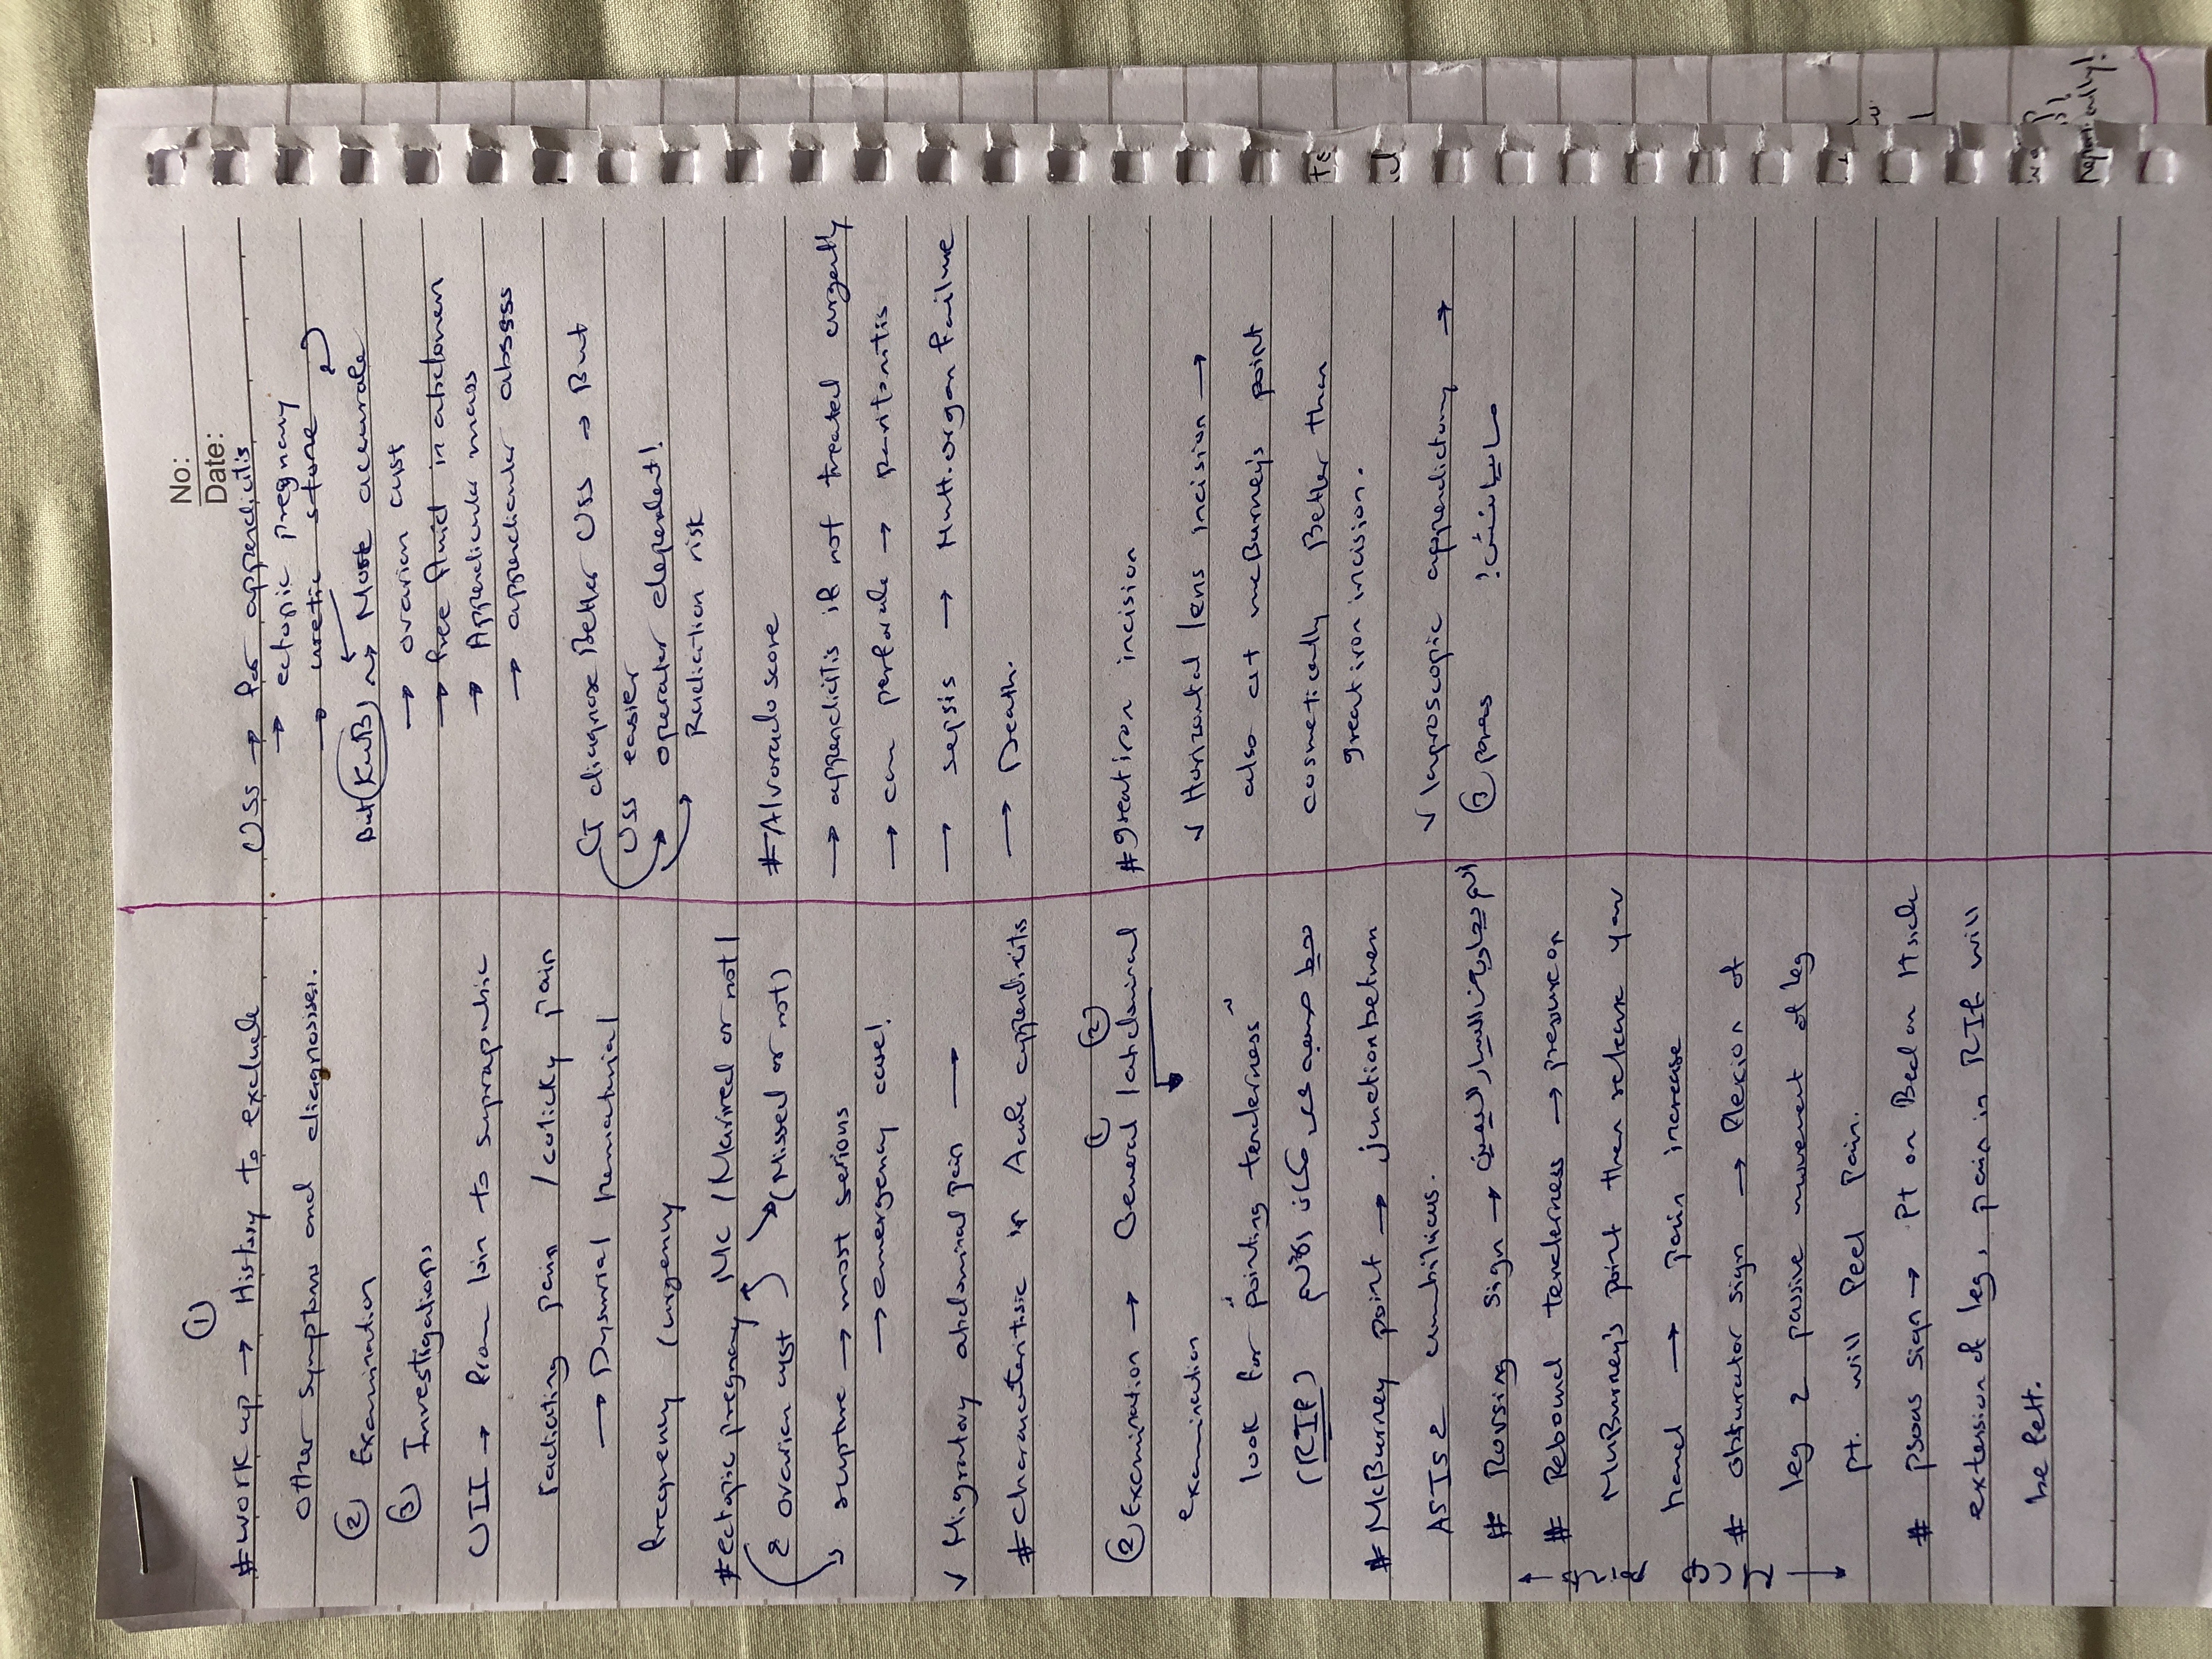 No:
Date:
①
#work up → History to exclude
other symptoms and diagnosises.
② Examination
③ Investigations
UTI → from loin to suprapubic
radiating pain / colicky pain
→ Dysuria / hematuria /
frequency / urgency
#Ectopic pregnancy MC / Marired or not /
& ovarian cyst (Missed or not)
rupture → most serious
→ emergency case!
✓ Migratory abdominal pain →
# characteritisic in Acute appendicitis
① ②
② Examination → General / abdominal
examination
look for "pointing tenderness"
(RIF)
# McBurney point → junction between
ASIS & umbilicus.
# Rovsing sign →
# Rebound tenderness → pressure on
McBurney's point then release your
hand → pain increase
# obturator sign → flexion of
leg & passive movement of leg
pt. will feel pain.
# psoas sign → pt on Bed on lt side
extension of leg, pain in RIF will
be felt.
USS → for appendicitis
→ ectopic pregnancy
→ uretic stone
but (KUB) → More accurate
→ ovarian cyst
→ free fluid in abdomen
→ Appendicular mass
→ appendicular absess
CT diagnose Better USS → But
USS easier
operater dependent!
Radiation risk
#Alvorado score
→ appendicitis if not treated urgently
→ can perforate → peritonitis
→ sepsis → Multi.organ failure
→ Death.
#greatiron incision
✓ Horizontal lens incision →
also at mcBurney's point
cosmetically Better than
greatiron incision.
✓ laproscopic appendictomy →
③ pores